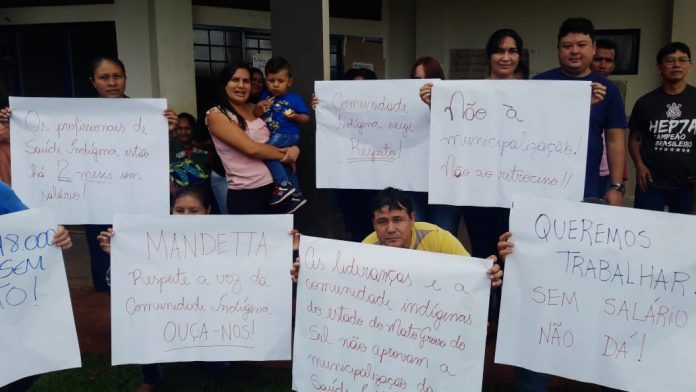 Os profissionais de
Saúde Indígena estão
há 2 meses sem
salário!
Comunidade
Indígena exige
Respeito!
Não à
municipalização!
Não ao retrocesso!!
HEPTA
CAMPEÃO
BRASILEIRO
18.000
SEM
TO!
MANDETTA
Respeite a voz da
Comunidade Indígena
OUÇA-NOS!
As lideranças e a
comunidade indígenas
do estado do Mato Grosso do
Sul não aprovam a
municipalização da
QUEREMOS
TRABALHAR!
SEM SALÁRIO
NÃO DÁ!